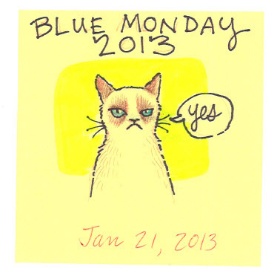 BLUE MONDAY
2013
yes
Jan 21, 2013